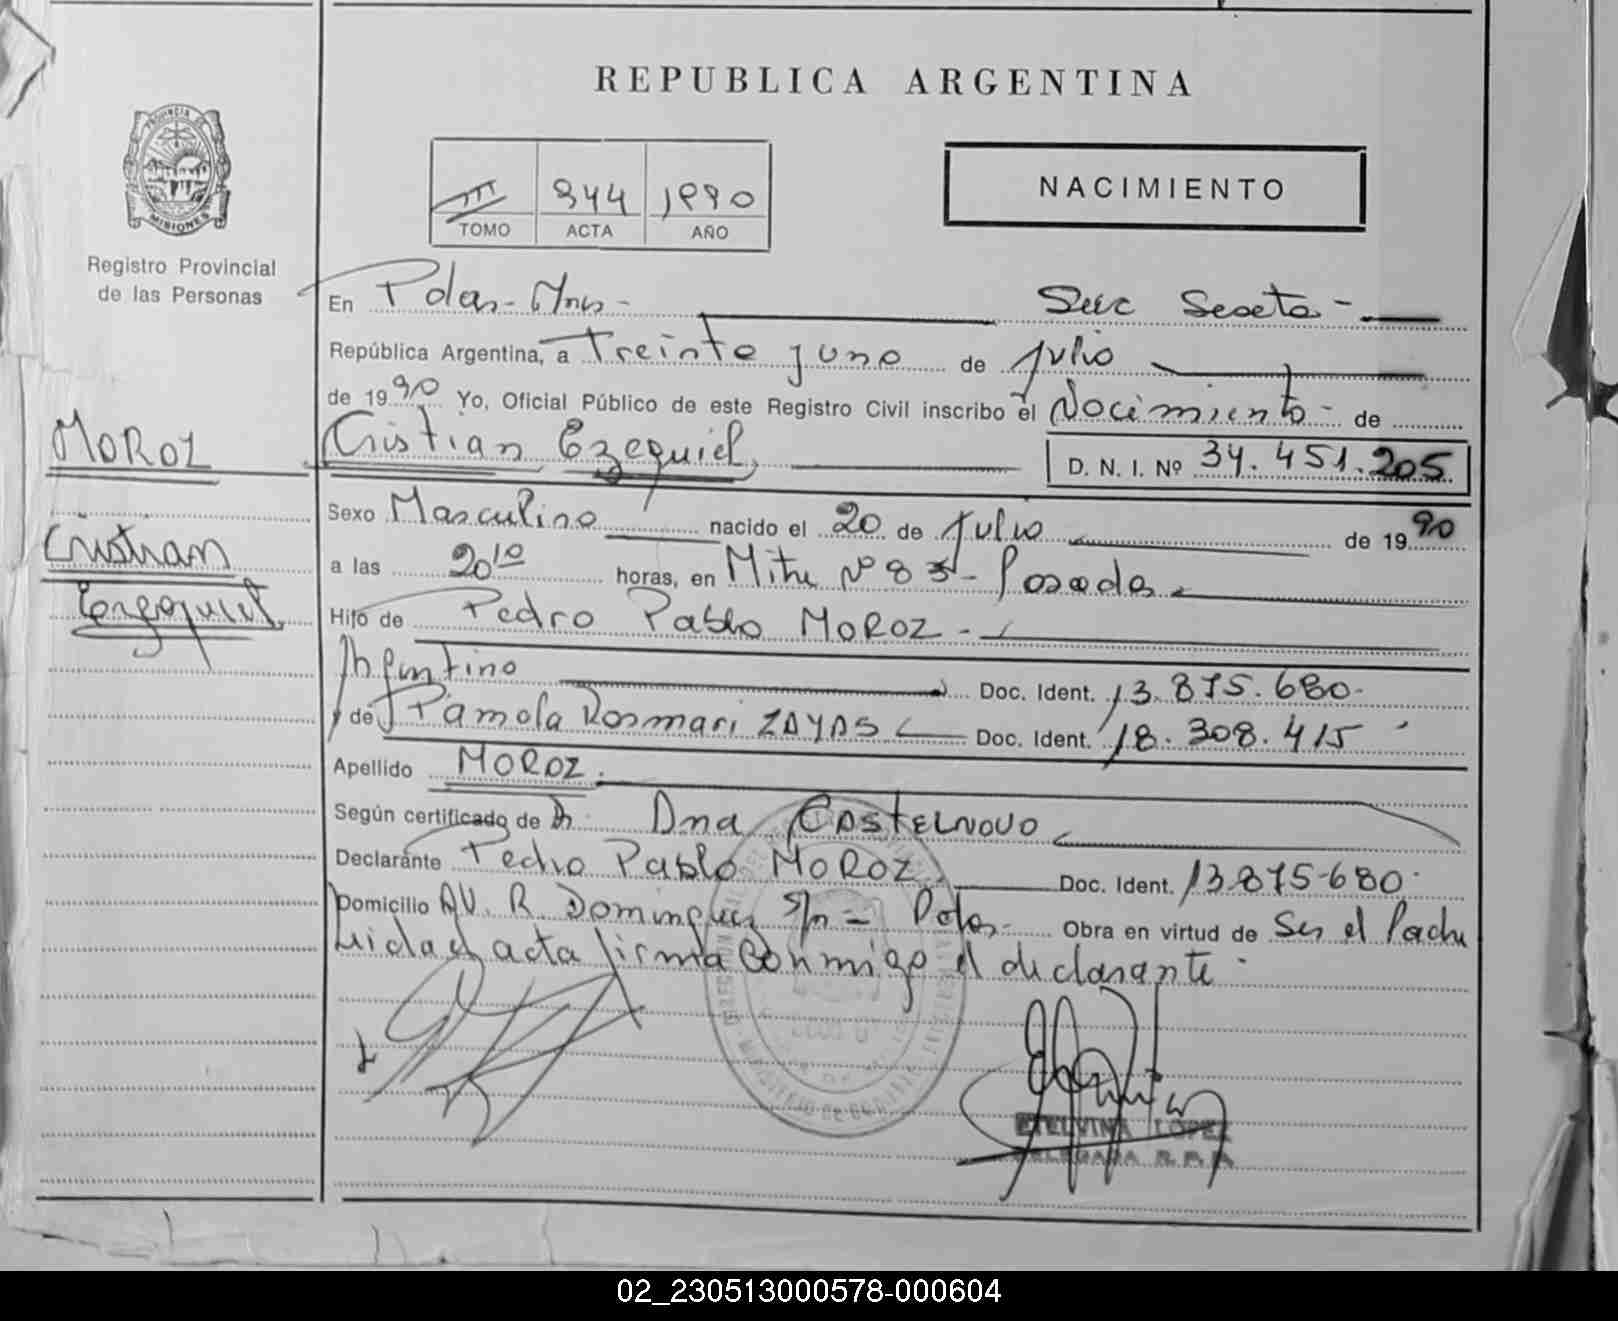 REPUBLICA ARGENTINA
PROVINCIA DE
MISIONES
Registro Provincial
de las Personas
III 944 1990
TOMO ACTA AÑO
NACIMIENTO
En Pdas - Mnes - Secc Sexta -
República Argentina, a Treinta y uno de Julio
de 1990 Yo, Oficial Público de este Registro Civil inscribo el Nacimiento - de
MOROZ
Cristian Ezequiel, D. N. I. Nº 34.451.205
Cristian
Ezequiel
Sexo Masculino nacido el 20 de Julio de 1990
a las 20 10 horas, en Mitre Nº 83 - Posadas -
Hijo de Pedro Pablo MOROZ -
Argentino Doc. Ident. 13.875.680 -
y de Pamela Rosmari ZAYAS Doc. Ident. 18.308.415
Apellido MOROZ.
Según certificado de Dr. Ana CASTELNOVO
Declarante Pedro Pablo MOROZ, Doc. Ident. 13.875-680 -
Domicilio AV. R. Dominguez S/n - Pdas - Obra en virtud de Ser el Padre
Leida el acta firma conmigo el declarante -
ETELVINA LOPEZ
DELEGADA R.P.P.
02_230513000578-000604